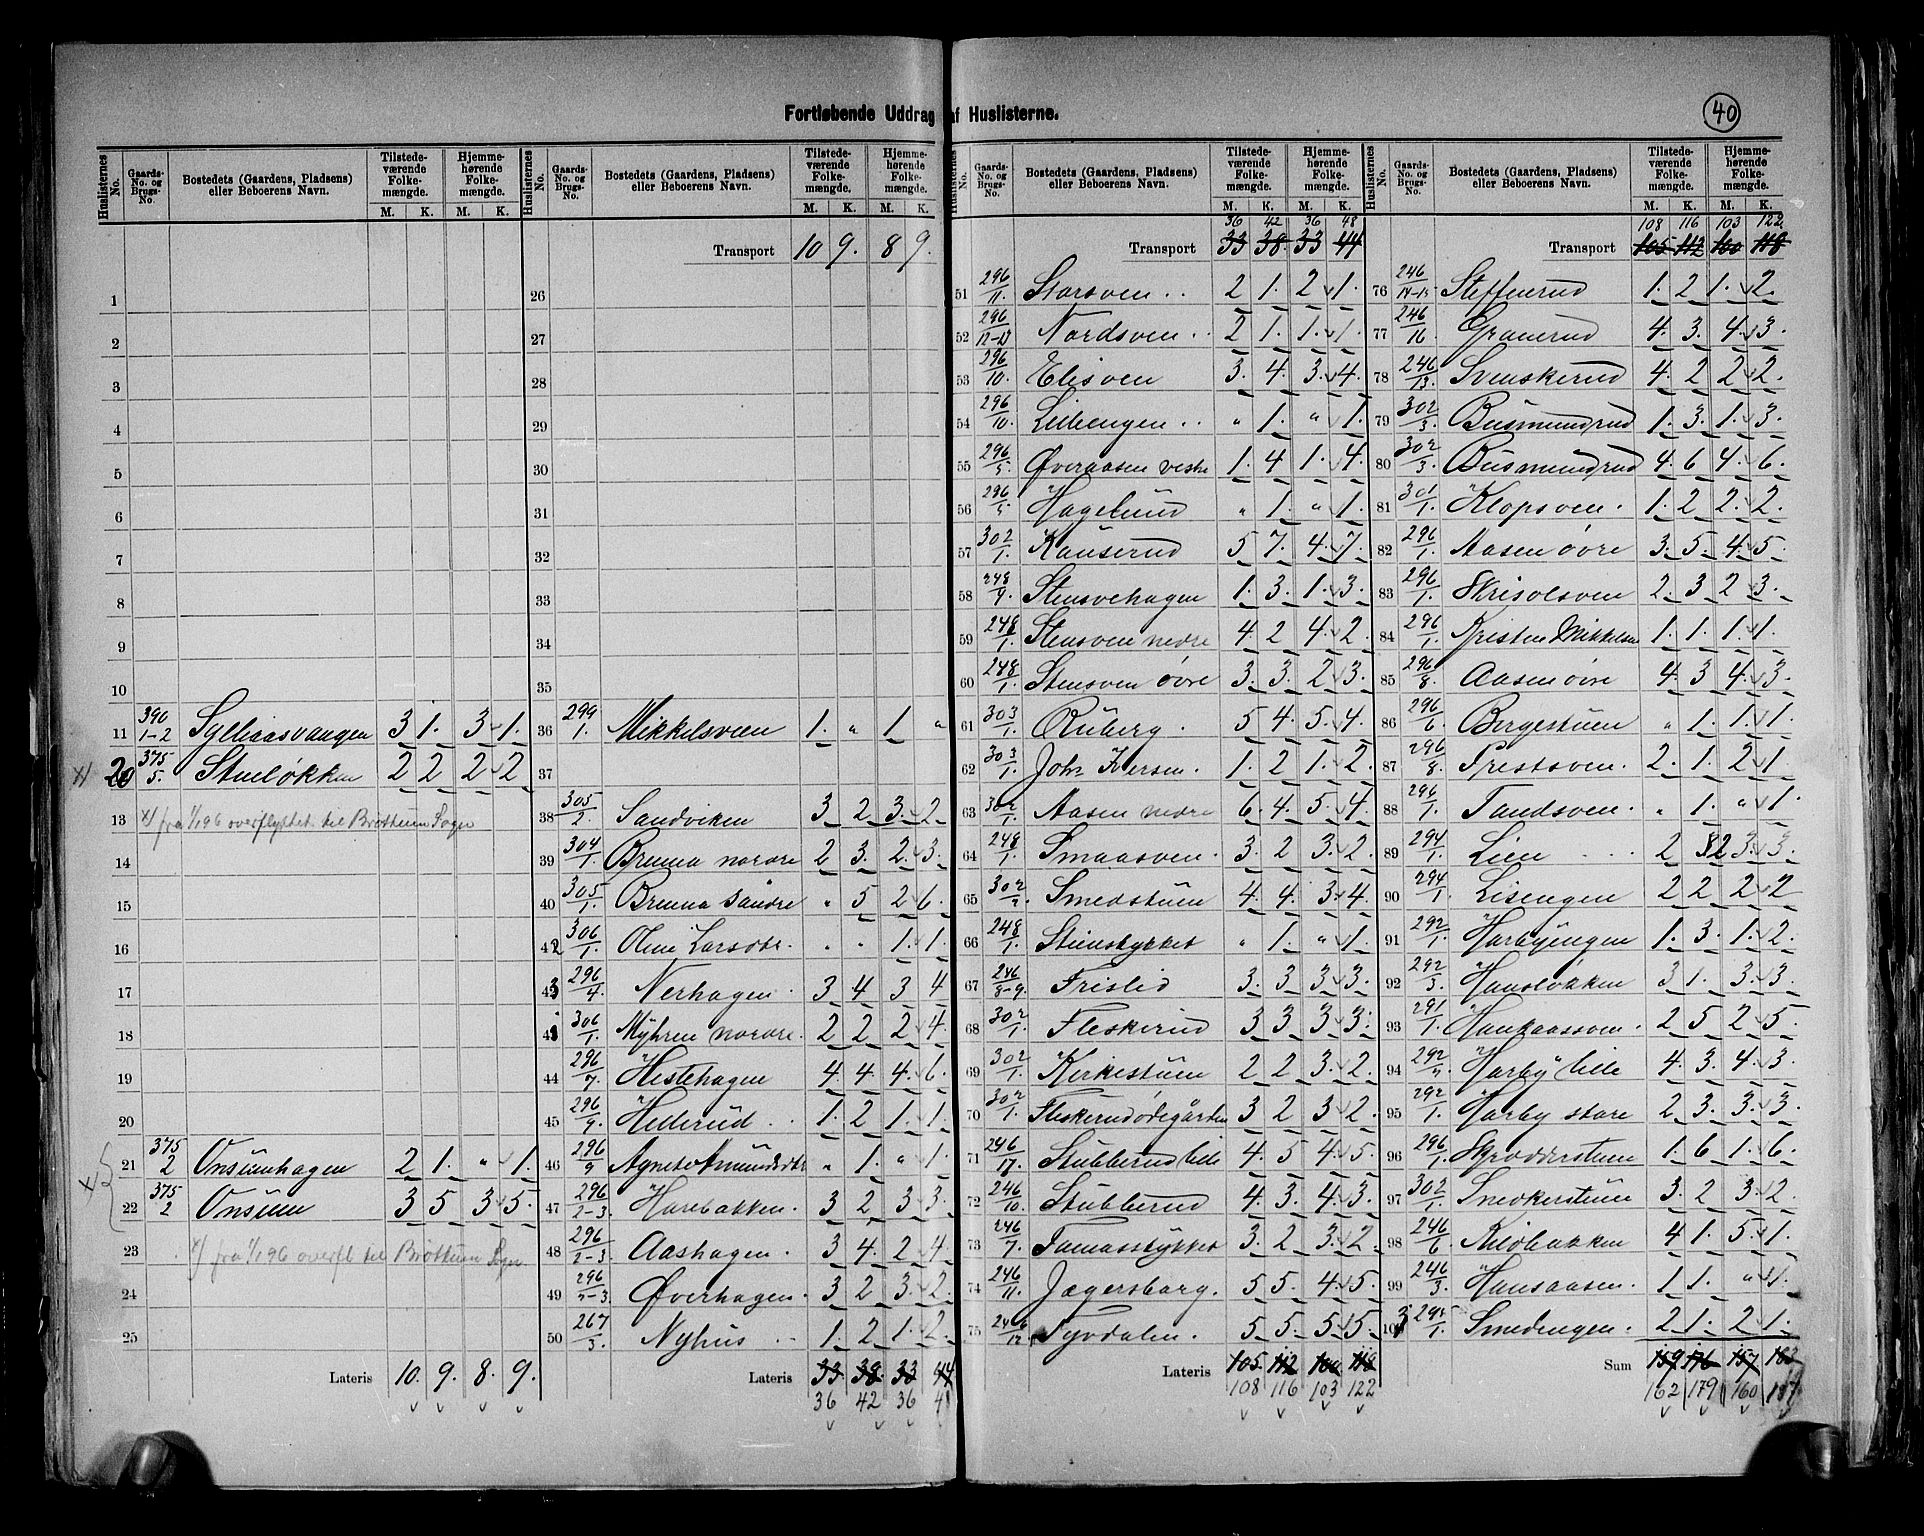 Fortløbende Uddrag af Huslisterne.
40
Huslisternes No. Gaards-No. og Brugs-No. Bostedets (Gaardens, Pladsens) eller Beboerens Navn. Tilstedeværende Folkemængde. M. K. Hjemmehørende Folkemængde. M. K.
1
2
3
4
5
6
7
8
9
10
11 390/1-2 Sylliaasvangen 3 1. 3 1.
20 375/5. Stenløkken 2 2 2 2
13 x/ fra 1/1 96 overflyttet til Brøttum Sogn
14
15
16
17
18
19
20
21 375/2 Onsumhagen 2 1. " 1.
22 375/2 Onsum 3 5 3 5.
23 x/ fra 1/1 96 overfl til Brøttum Sogn
24
25
Lateris 10. 9. 8. 9.
Huslisternes No. Gaards-No. og Brugs-No. Bostedets (Gaardens, Pladsens) eller Beboerens Navn. Tilstedeværende Folkemængde. M. K. Hjemmehørende Folkemængde. M. K.
Transport 10 9. 8 9.
26
27
28
29
30
31
32
33
34
35
36 299/1. Mikkelsveen 1. " 1 "
37
38 305/2. Sandviken 3 2 3. 2
39 304/1. Bruna nordre 2 3. 2. 3.
40 305/1. Bruna søndre " 5 2 6.
42 306/1. Oline Larsdtr. " " 1. 1.
43 296/4. Nerhagen. 3 4 3 4
306/1. Myhren nordre. 2 2 2 4.
44 296/7. Hestehagen 4. 4. 4. 6.
45 296/9. Hellerud 1. 2 1. 1.
46 296/9 Agnete Amundsdtr " 1. " 1.
47 296/2-3. Harebakken. 3 2 3 3.
48 296/2-3 Aashagen. 3 4. 2 4.
49 296/2-3 Øverhagen. 3 2 3. 2.
50 267/3. Nyhus 1. 2 1. 2
Lateris 33. 38. 33 44
36 42 36 48
Huslisternes No. Gaards-No. og Brugs-No. Bostedets (Gaardens, Pladsens) eller Beboerens Navn. Tilstedeværende Folkemængde. M. K. Hjemmehørende Folkemængde. M. K.
36 42 36 48
Transport 33 38. 33 44
51 296/11. Storsven 2 1. 2 1.
52 296/12-13 Nordsven 2 1. 1. 1.
53 296/10. Elisven 3. 4. 3. 4.
54 296/10. Lillengen " 1. " 1.
55 296/5. Øveraasen vestre 1. 4 1. 4.
56 296/5 Hagelund " 1. " 1.
57 302/1. Kauserud 5 7. 4. 7.
58 248/9. Stensvehagen 1. 3. 1. 3.
59 248/1. Stensven nedre 4. 2 4. 2.
60 248/1. Stensven øvre 3. 3. 2 3.
61 303/1. Ruberg. 5 4. 5. 4.
62 303/1. Joh. Iversen. 1. 2 1. 2.
63 302/1. Aasen nedre 6. 4. 5. 4.
64 248/1. Smaasven. 3. 2 3. 2.
65 302/2. Smedstuen 4. 4. 3. 4.
66 248/1. Stenstykket " 1. " 1.
67 246/8-9. Frislid 3. 3. 3. 3.
68 302/1. Fleskerud 3 3. 3 3.
69 302/1. Kirkestuen 2 2 3. 2.
70 302/1. Fleskerudødegården 3 2 3 2.
71 246/17. Stubberud lille 4. 5 4. 5.
72 246/10. Stubberud 4. 3. 4. 3.
73 246/7. Tamasstykket 3. 2 3. 2
74 246/11. Jægersborg. 5 5. 4. 5.
75 246/12 Fyrdalen. 5. 5. 5. 5.
Lateris 105 112 100 118
108 116 103 122
Huslisternes No. Gaards-No. og Brugs-No. Bostedets (Gaardens, Pladsens) eller Beboerens Navn. Tilstedeværende Folkemængde. M. K. Hjemmehørende Folkemængde. M. K.
108 116 103 122
Transport 105 112 100 118
76 246/14-15 Steffenrud 1. 2 1. 2.
77 246/16. Granerud 4. 3. 4. 3.
78 246/13. Svenskerud 4. 2 2 2.
79 302/3. Busmundrud 1. 3. 1. 3.
80 302/3. Busmundrud 4. 6 4. 6.
81 301/1. Klopsven. 1. 2 2. 2.
82 296/1. Aasen øvre 3. 5. 4. 5.
83 296/1. Skrisolsven 2. 3 2 3.
84 296/1. Kristen Mikkelsen 1. 1. 1. 1.
85 296/8. Aasen øvre 4. 3 4. 3.
86 296/6. Bergestuen " 1. 1. 1.
87 296/8. Prestsven. 2. 1. 2 1.
88 296/1. Tandsven. " 1. " 1.
89 294/1. Lien 2 2 3. 3.
90 294/1. Lisengen 2 2 2 2
91 292/1. Harbyengen 1. 3. 1. 2.
92 292/3. Hansløkken 3 1. 3. 3.
93 291/1. Haukaassven. 2 5 2 5.
94 292/2. Harby lille 4. 3. 4. 3
95 292/1. Harby store 2 3. 3. 3.
96 296/1. Skrædderstuen 1. 6 1. 6.
97 302/1. Snedkerstuen 3. 2 3. 2.
98 246/6. Kildbakken 4. 1 5. 1.
99 246/3. Hansaasen. 1 1. " 1.
100 294/1. Smedengen. 2 1. 2 1.
Sum 159 176 157 183
162 179 160 187